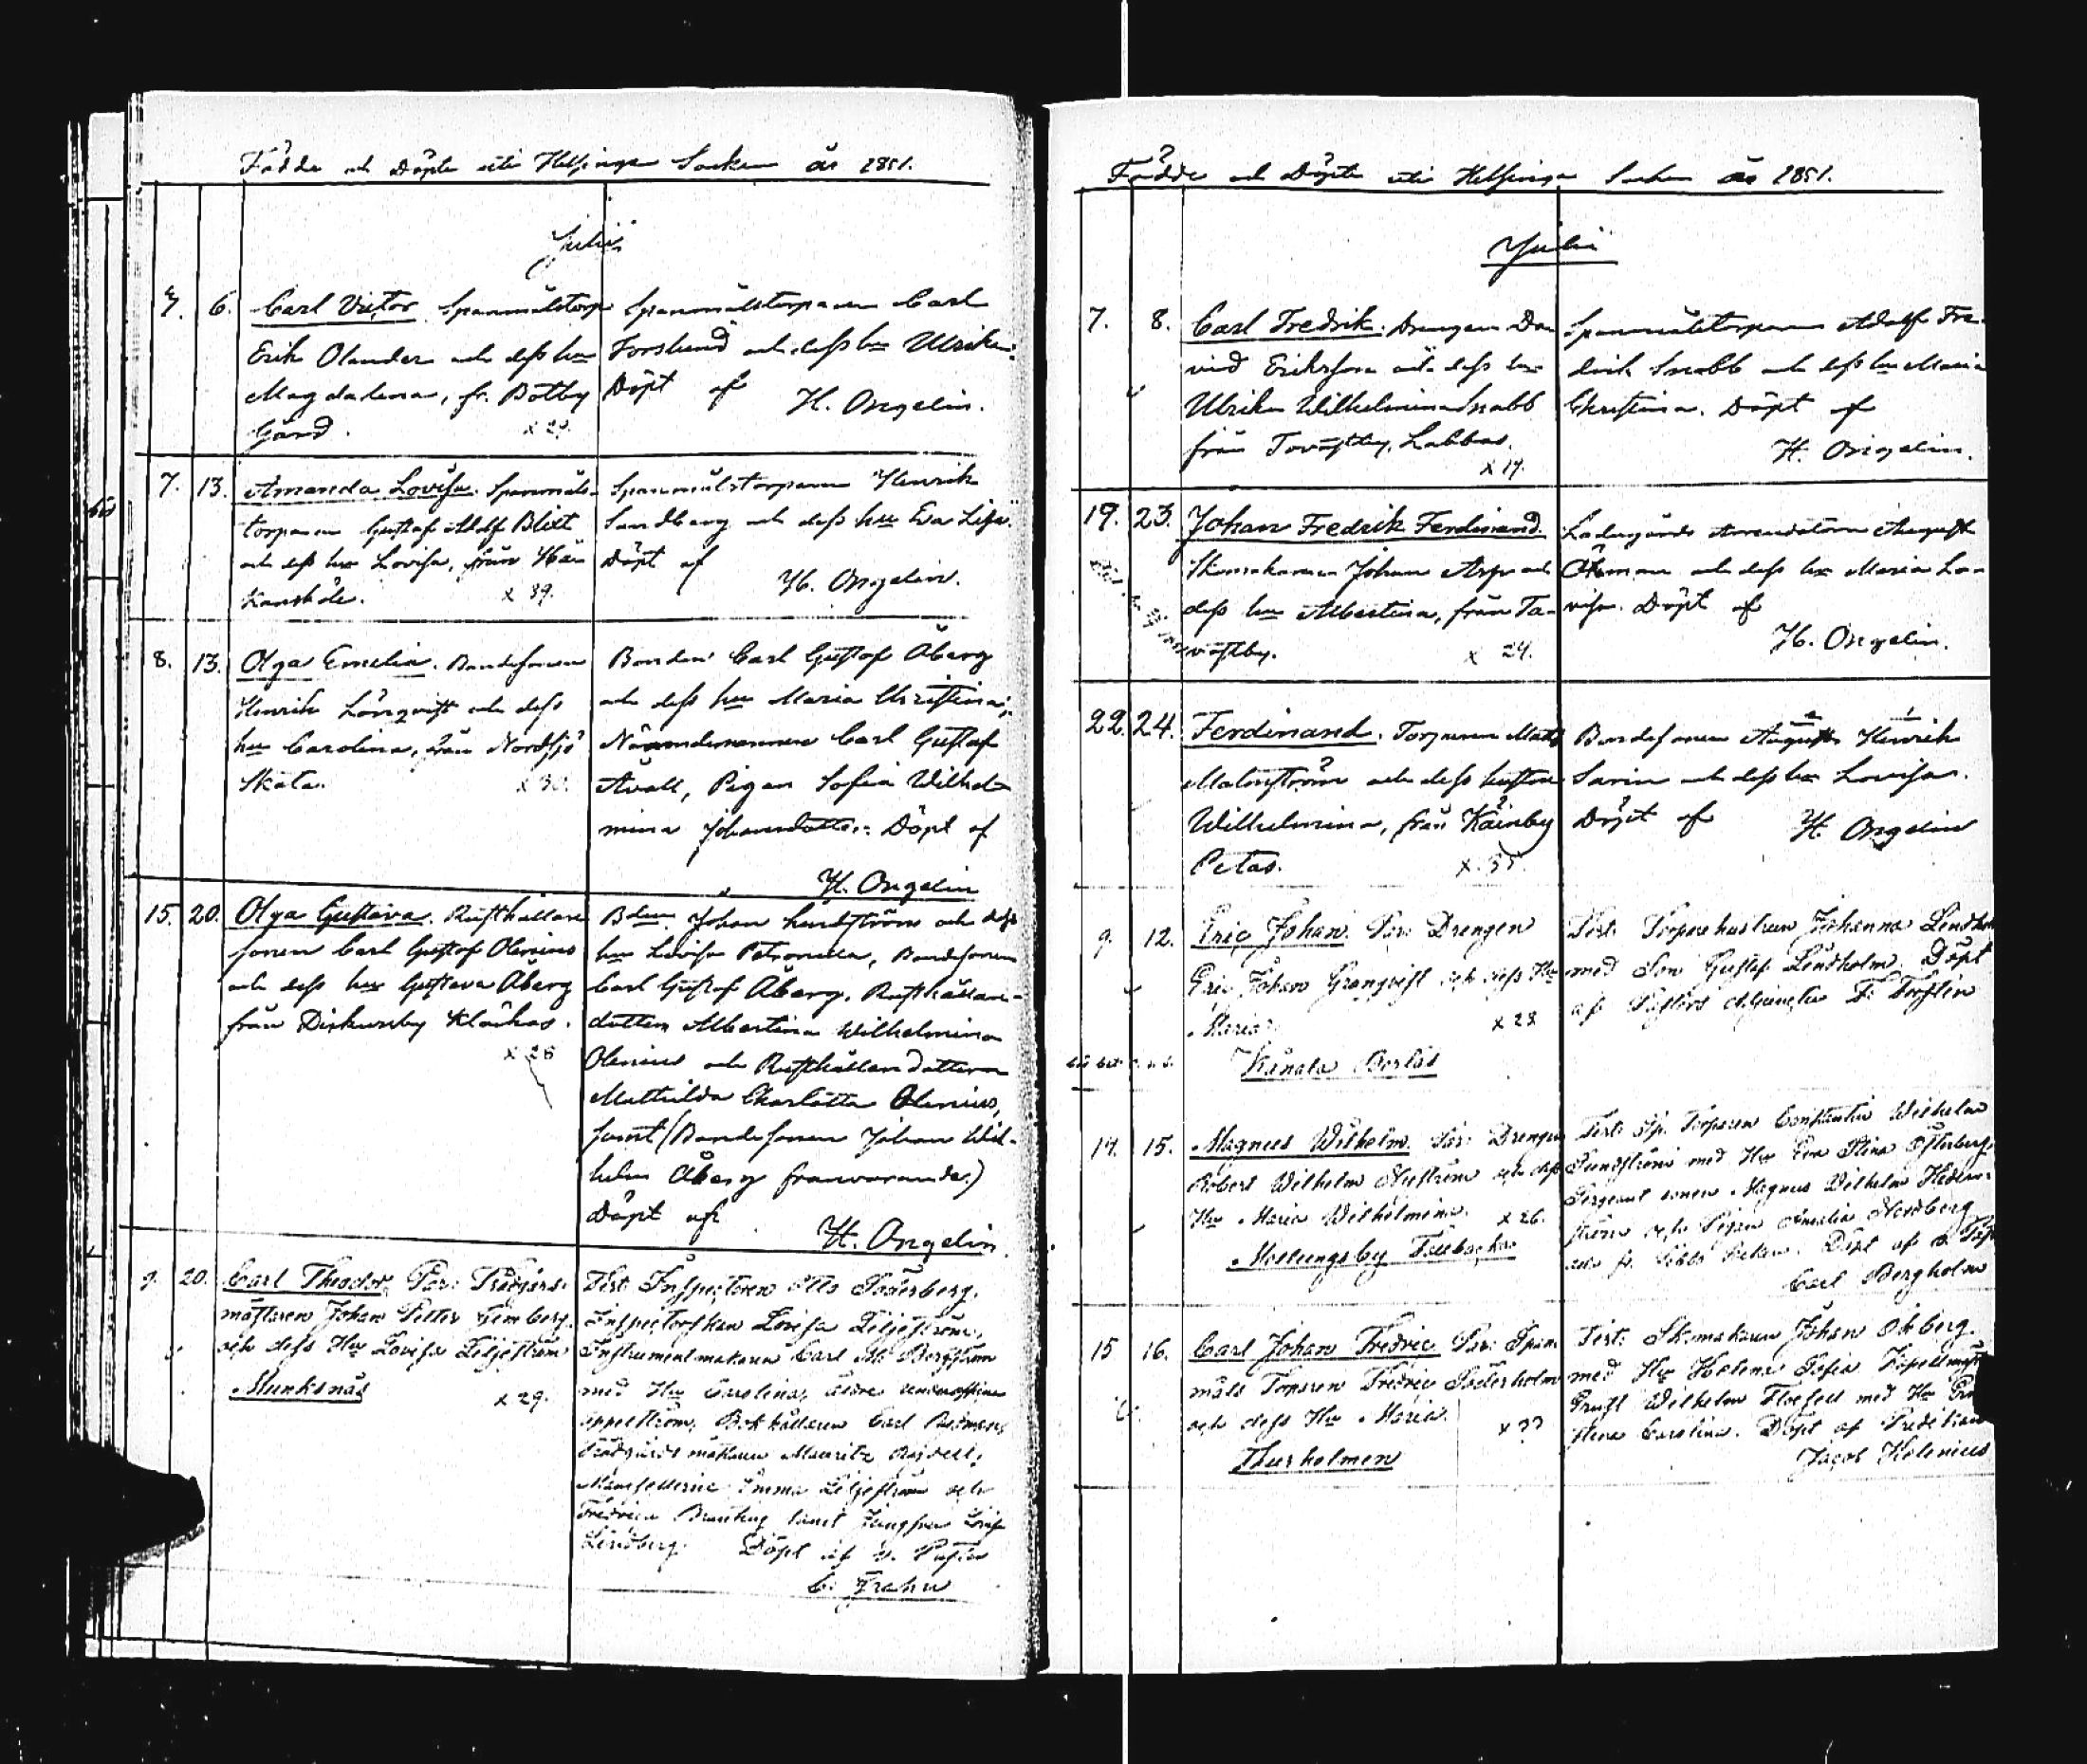 Födde och Döpte uti Helsinge Socken år 1851.
Julii
7. 6. Carl Victor. Spanmålstorp
Erik Olander och dess hu
Magdalena, fr. Botby
Gård. x 29.
Spanmålstorparen Carl
Forslund och dess hu Ulrika.
Döpt af H. Ongelin.
7. 13. Amanda Lovisa. Spanmåls-
torparen Gustaf Adolf Blixt
och dess hu Lovisa, från
x 39.
Spanmålstorparen Henrik
Sandberg och dess hu Eva Lisa.
Döpt af H. Ongelin.
8. 13. Olga Emelia. Bondesonen
Henrik Lönqvist och dess
hu Carolina, från Nordsjö
Skata. x 30.
Bonden Carl Gustaf Åberg
och dess hu Maria Christina,
Nämndemannen Carl Gustaf
Avall, Pigan Sofia Wilhel-
mina Johansdotter. Döpt af
H. Ongelin
15. 20. Olga Gustava. Rusthållare
sonen Carl Gustaf Olenius
och dess hu Gustava Åberg
från Dickursby Klockas.
x 26
Bden Johan Lindström och dess
hu Lovisa Petronella, Bondesonen
Carl Gustaf Åberg, Rusthållare-
dottern Albertina Wilhelmina
Olenius och Rusthållaredottern
Mathilda Charlotta Olenius,
samt (Bondesonen Johan Wil-
helm Åberg franvarande.)
Döpt af
H. Ongelin.
9. 20. Carl Theodor, Par: Trädgårds-
mästaren Johan Petter
och dess Hu Lovisa Liljeström
Munksnäs x 29.
Test: Inspectoren Otto Söderberg,
Inspectorskan Lovisa Liljeström,
Instrumentmakaren Carl Bergström
med Hu Carolina,
Bokhållaren Carl
trädgårdsmästaren Mauritz
Mamsellerne Emma Liljeström och
Fredrica samt Jungfru
Lindberg. Döpt af v. Pastor
C. Frahn
Födde och Döpte uti Helsinge Socken år 1851.
Julii
7. 8. Carl Fredrik. Drengen Da
vid Eriksson och dess hu
Ulrika Wilhelmina Snabb
från Tavastby, Labbas.
x 19.
Spanmålstorparen Adolf Fre-
drik Snabb och dess hu Maria
Christina. Döpt af
H. Ongelin.
19. 23. Johan Fredrik Ferdinand.
Skomakaren Johan Asp och
dess hu Albertina, från Ta-
vastby. x 24.
Ladugårds Arrendatorn August
Öhman och dess hu Maria Lo-
visa. Döpt af
H. Ongelin.
22. 24. Ferdinand. Torparen Mats
Malmström och dess hustru
Wilhelmina, från Käinby
Petas. x. 35.
Bondesonen August Henrik
Sarin och dess hu Lovisa.
Döpt af H. Ongelin
9. 12. Eric Johan. Par: Drengen
Eric Johan Granqvist och dess Hu
Maria. x 28
Kånala Borläs
Test: Torparehustrun Johanna Lindhol
med Son Gustaf Lindholm. Döpt
af Pastors Adjuncten F. Forslin
14. 15. Magnus Wilhelm. Par: Drengen
Robert Wilhelm Nyström och dess
Hu Maria Wilhelmina. x 26.
Mellungsby Fallbacka
Test: Sp. Torparen Constantin Wilhelm
Sundström med Hu Eva Stina Österberg,
Sergeant sonen Magnus Wilhelm
och Pigan Amalia Nordberg
Döpt af
Carl Bergholm
15 16. Carl Johan Fredric Par: Span
måls Torparen Fredric Söderholm
och dess Hu Maria. x 33
Thurholmen
Test: Skomakaren Johan Ökberg
med Hu Helena Sofia
Ernst Wilhelm med Hu
Carolina. Döpt af Predikan
Jacob Helenius